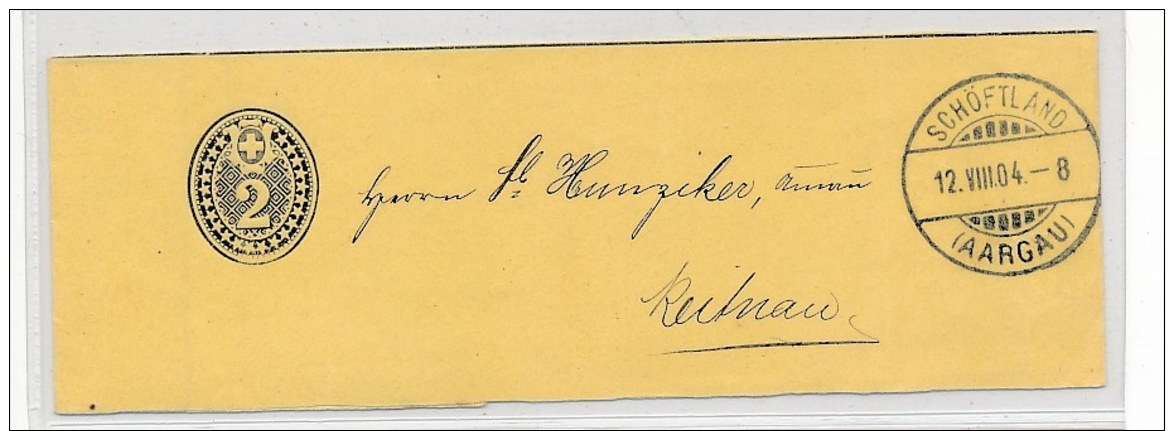 2
SCHÖFTLAND
12.VIII.04.–8
(AARGAU)
Herrn Hunziker,
Reitnau